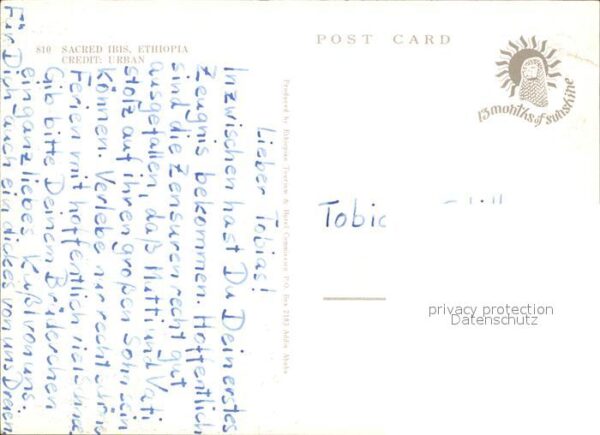 810 SACRED IBIS, ETHIOPIA
CREDIT: URBAN
POST CARD
13 months of sunshine
Produced by Ethiopian Tourism & Hotel Commission P.O. Box 2183 Addis Ababa
Lieber Tobias!
Inzwischen hast Du Dein erstes
Zeugnis bekommen. Hoffentlich
sind die Zensuren recht gut
ausgefallen, daß Mutti und Vati
stolz auf ihren großen Sohn sein
können. Verlebe nur recht schöne
Ferien mit hoffentlich viel
Gib bitte Deinem Brüderchen
ein ganz liebes Kußl von uns.
Für Dich auch ein dickes von uns Dreien
Tobia
privacy protection
Datenschutz